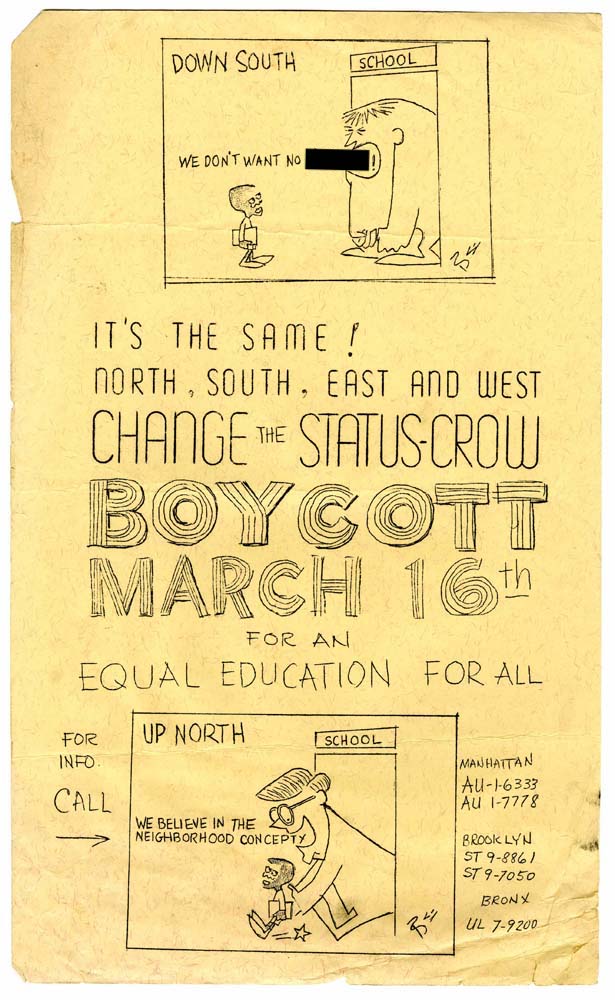 DOWN SOUTH
SCHOOL
WE DON'T WANT NO !
IT'S THE SAME!
NORTH, SOUTH, EAST AND WEST
CHANGE THE STATUS-CROW
BOYCOTT
MARCH 16th
FOR AN
EQUAL EDUCATION FOR ALL
UP NORTH
SCHOOL
WE BELIEVE IN THE
NEIGHBORHOOD CONCEPTY
FOR
INFO.
CALL
MANHATTAN
AU-1-6333
AU 1-7778
BROOKLYN
ST 9-8861
ST 9-7050
BRONX
UL 7-9200